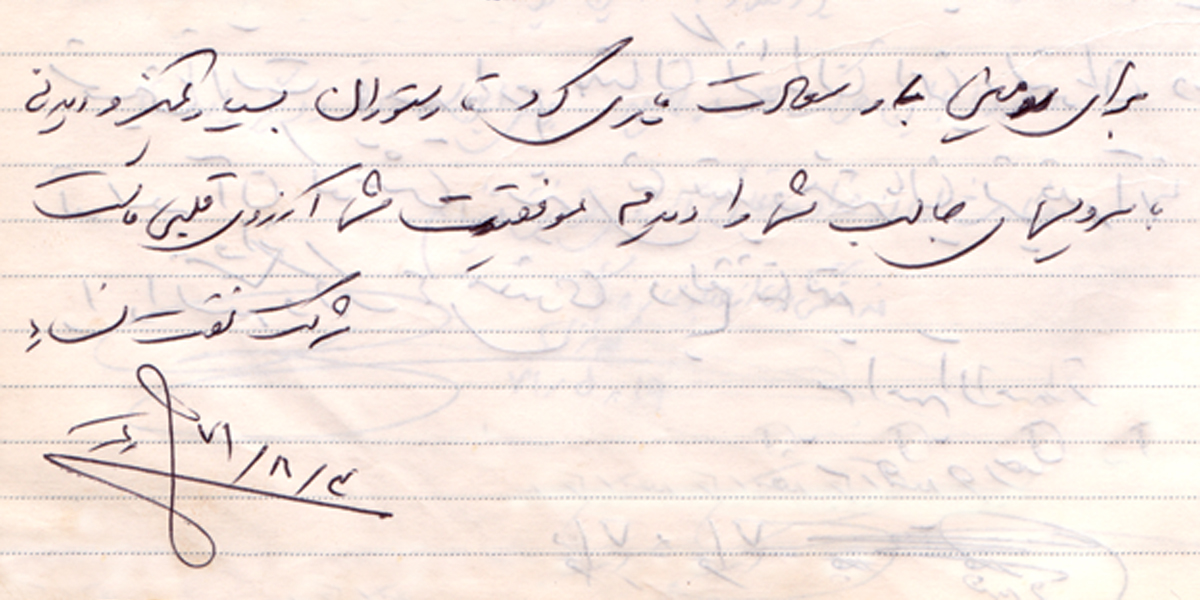 برای سومین بار سعادت یاری کرد تا رستوران بسیار تمیز و دیدنی
با سرویسهای جالب شما را دیدم موفقیت شما آرزوی قلبی ماست
شرکت نفت
۷۱/۸/۴